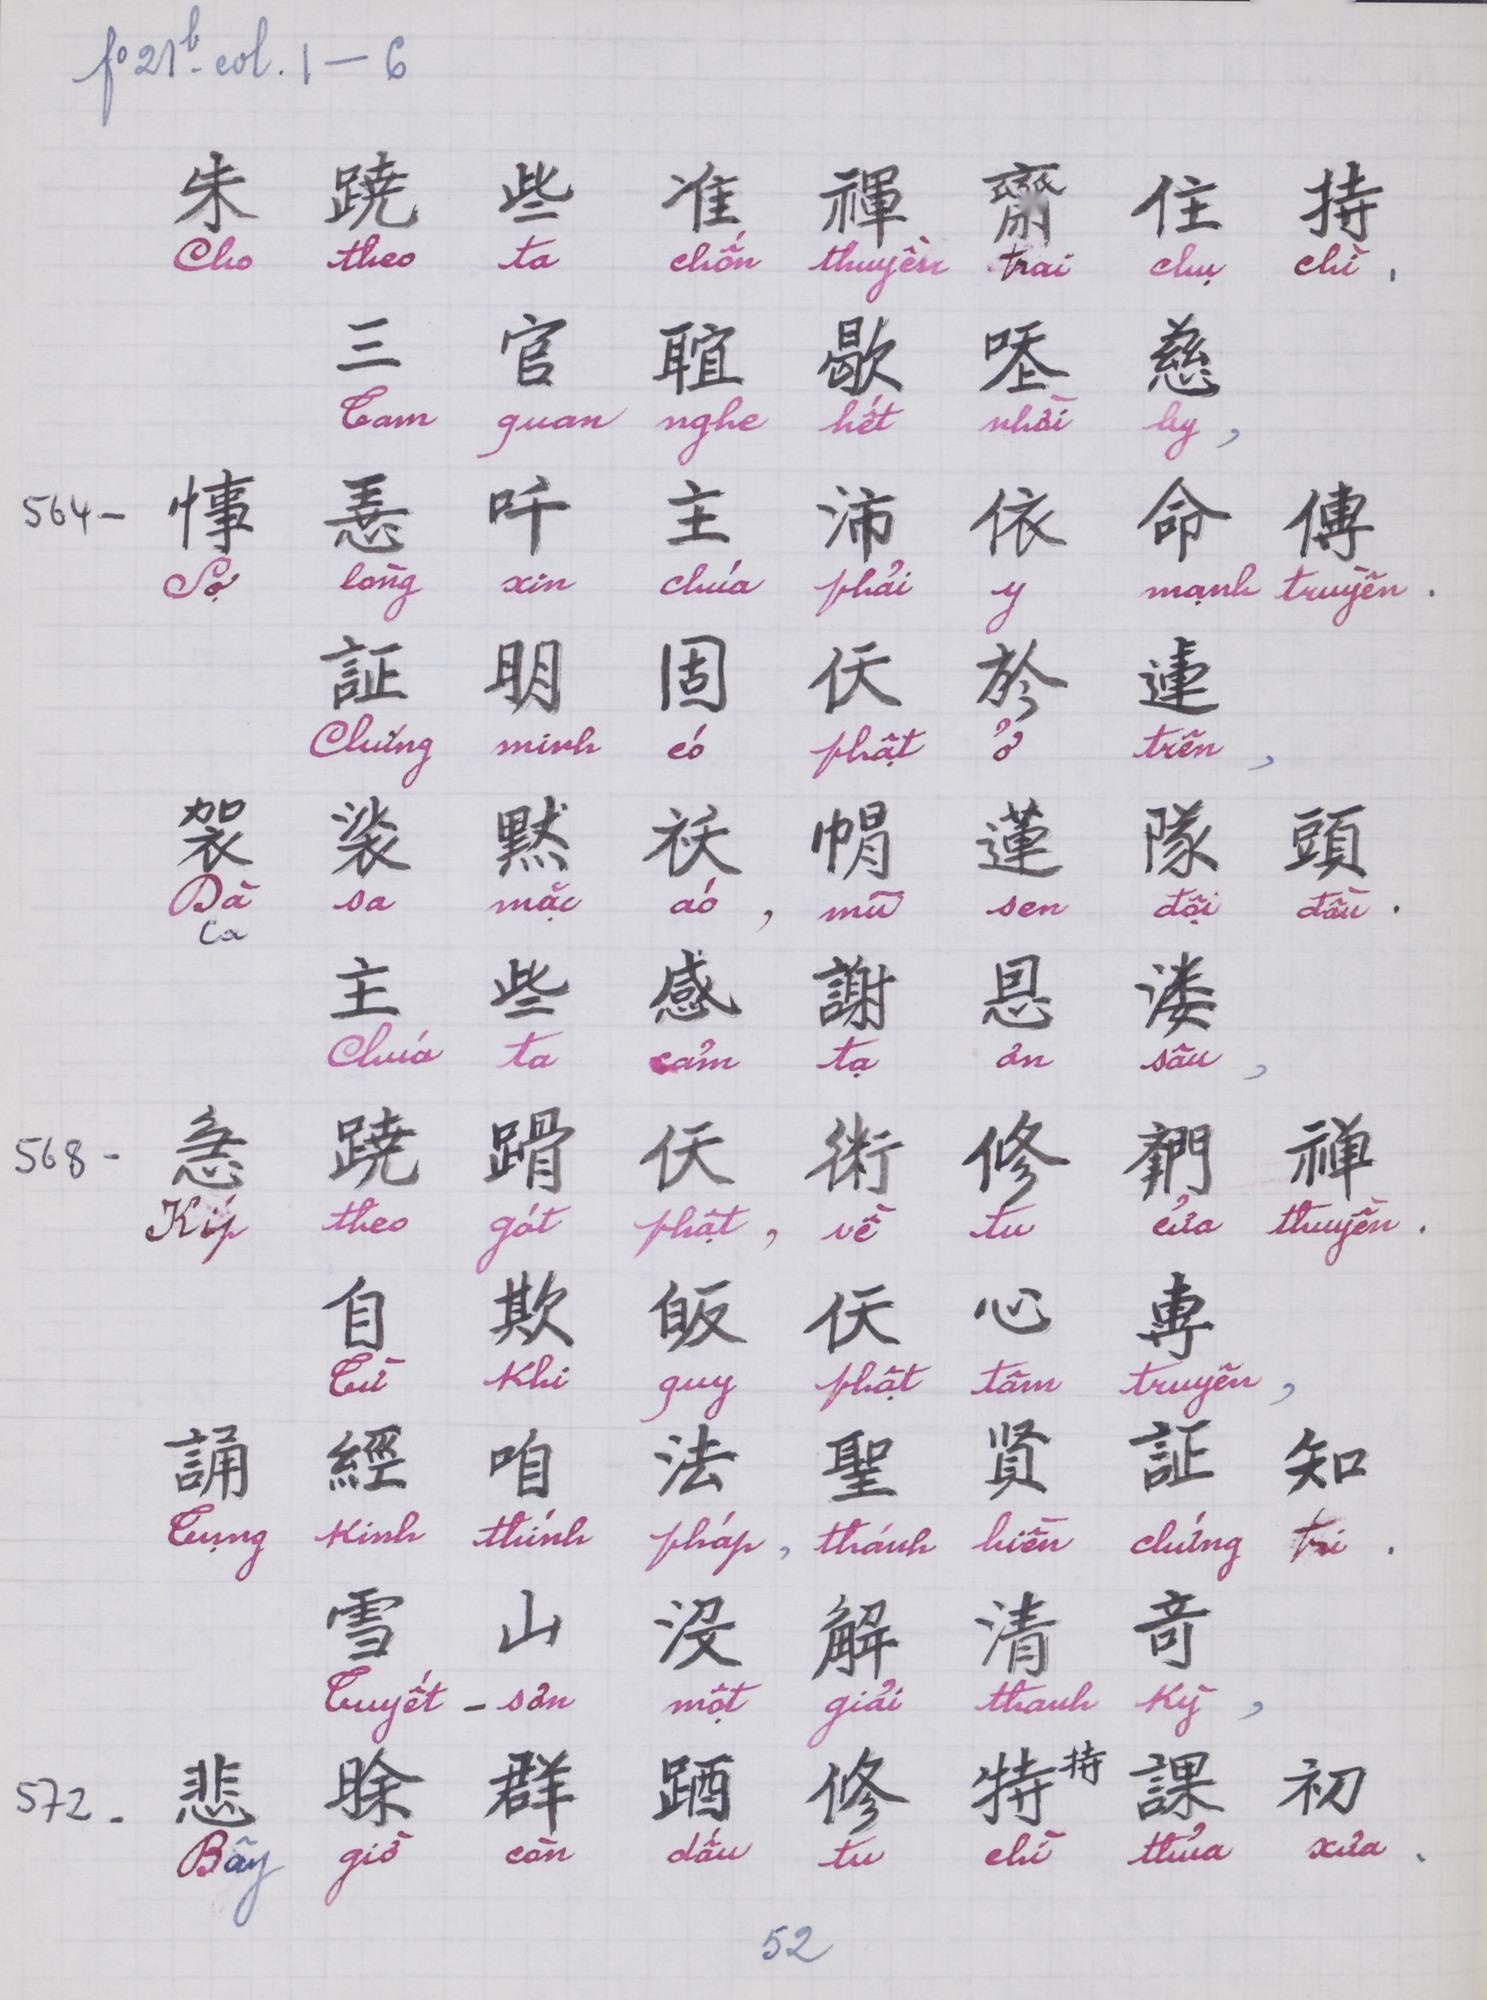 fo 21b - col. 1 — 6
朱 蹺 些 准 禪 齋 住 持
Cho theo ta chốn thuyền trai chụ chì .
三 官 𦖻 歇 慈
Tam quan nghe hết nhời ly ,
564- 吀 主 沛 依 命 傳
Sợ lòng xin chúa phải y mạnh truyền .
証 明 固 仸 於 連
Chứng minh có phật ở trên ,
袈 裟 默 襖 帽 蓮 隊 頭
Dà sa mặc áo , mũ sen đội đầu .
Ca
主 些 感 謝 恩 溇
Chúa ta cảm tạ ơn sâu ,
568 - 急 蹺 䠇 仸 術 修 禅
Kíp theo gót phật , về tu cửa thuyền .
自 欺 皈 仸 心 専
Từ khi quy phật tâm truyền ,
誦 經 咱 法 聖 賢 証 知
Tụng kinh thính pháp , thánh hiền chứng tri .
雪 山 没 解 清 竒
Tuyết - sơn một giải thanh kỳ ,
572 - 悲 賒 群 修 特 持 課 初
Bây giờ còn dấu tu chì thủa xưa .
52